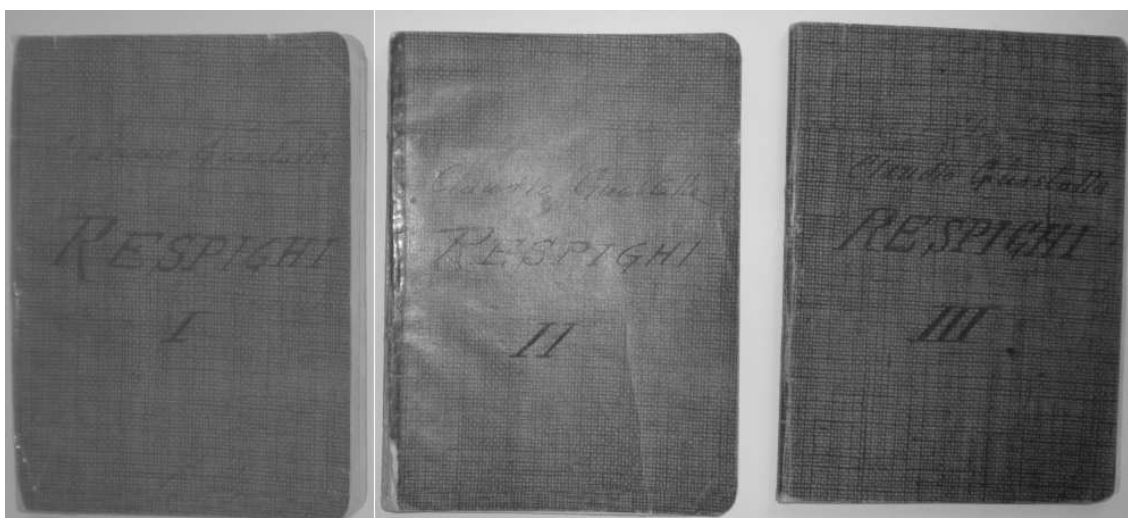 Claudio Guastalla
RESPIGHI
I
Claudio Guastalla
RESPIGHI
II
Claudio Guastalla
RESPIGHI
III